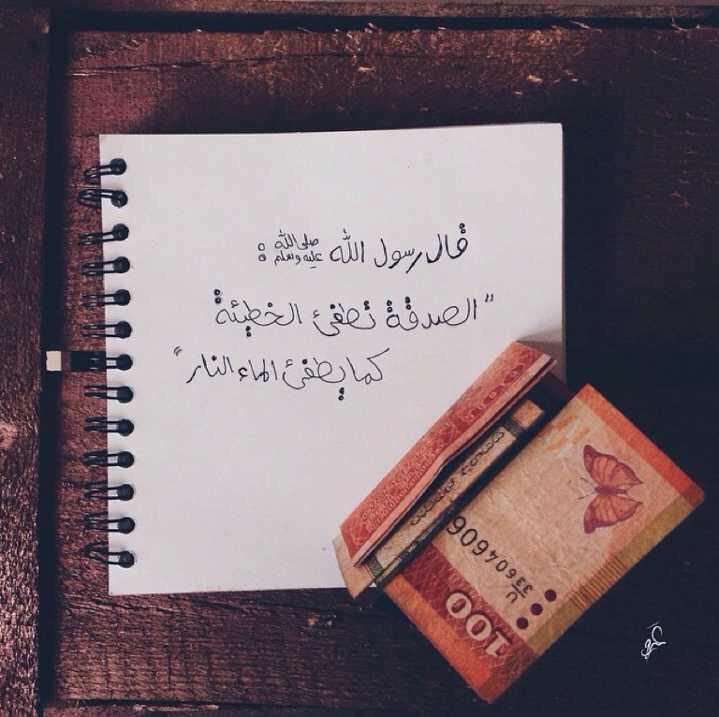 قال رسول الله صلى الله عليه وسلم :
"الصدقة تطفئ الخطيئة
كما يطفئ الماء النار"
100
U
33 604606